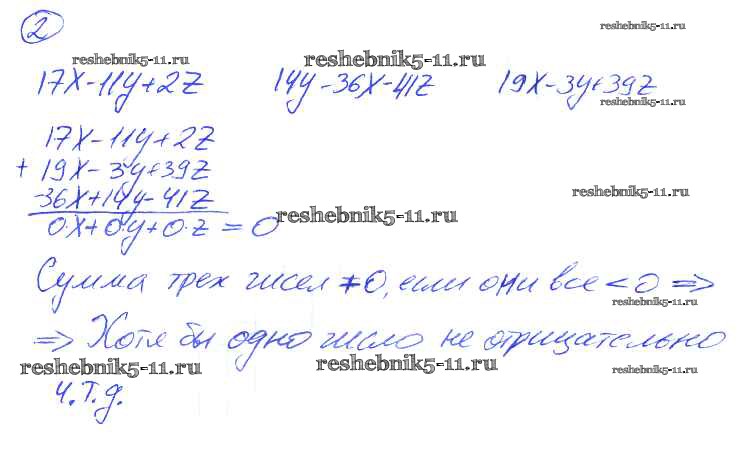 reshebnik5-11.ru
2
reshebnik5-11.ru reshebnik5-11.ru
17x-11y+2z 14y-36x-41z 19x-3y+39z
reshebnik5-11.ru
17x-11y+2z
+ 19x-3y+39z
-36x+14y-41z
reshebnik5-11.ru
0·x+0·y+0·z=0
reshebnik5-11.ru
Сумма трех чисел ≠0, если они все <0 =>
reshebnik5-11.ru
=> Хотя бы одно число не отрицательно
reshebnik5-11.ru reshebnik5-11.ru reshebnik5-11.ru
ч.т.д.